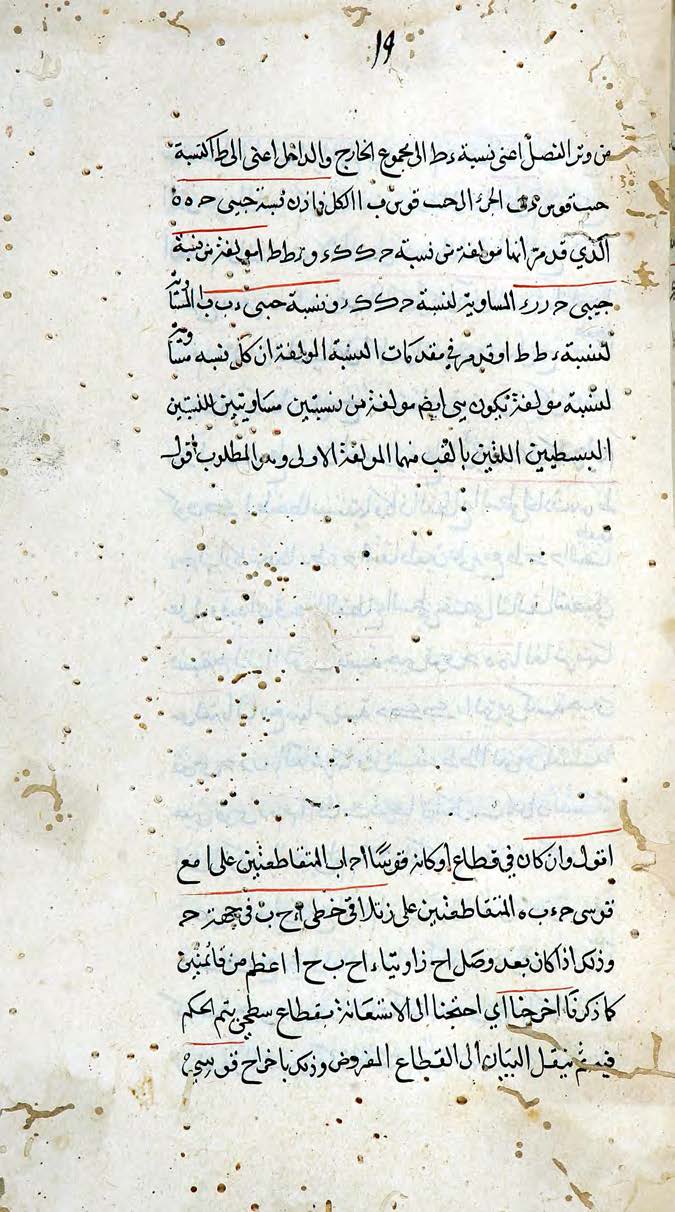 ١٩
من وتر المتصل اعنى نسبة ء ط الى مجموع الخارج والداخل اعنى الى ط ا كنسبة
جيب قوس الجزء الى جيب قوس ب ا الكل فاذن نسبة جيبى ح ه ه
الذي قد مر انها مولفة من نسبة ح ك ك ء و ء ط ط ا مولفة من نسبة
جيبى ح ر ر ء المساوية لنسبة ح ك ك ء ونسبة جيبى ء ب ب ا المساوية
لنسبة ء ط ط ا وقد مر في مقدمات النسبة المولفة ان كل نسبه مساوية
لنسبة مولفة تكون هي ايضا مولفة من نسبتين مساويتين للنسبتين
البسيطتين اللتين تالفت منهما المولفة الاولى وهو المطلوب قوله
اقول وان كان في قطاع او كانت قوسا ا ح ا ب المتقاطعتين على ا مع
قوسى ح ء ب ه المتقاطعتين على ز تلاقى خطى ح ب في جهة ح
وذلك اذا كان بعد وصل ا ح زاويتا ء ا ح ب ح ا اعظم من قائمتين
كما ذكرنا اخرجنا اي احتجنا الى الاستعانة بقطاع سطحي يتم الحكم
فيه ثم ينقل البيان الى القطاع المفروض وذلك باخراج قوسي